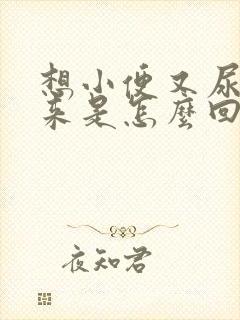 想小便又尿
来是怎麼回
夜知君